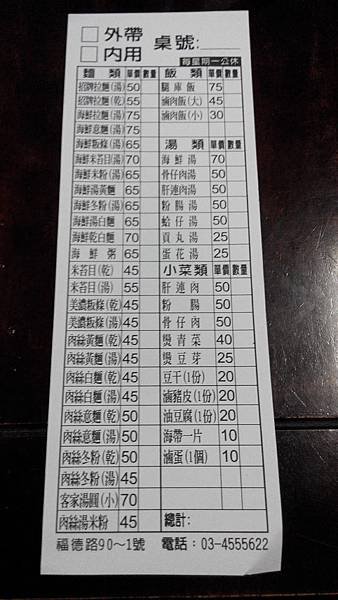 □外帶
□內用
桌號:
每星期一公休
麵類 單價 數量
招牌拉麵(湯) 50
招牌拉麵(乾) 55
海鮮拉麵(湯) 75
海鮮意麵(湯) 75
海鮮粄條(湯) 65
海鮮米苔目(湯) 70
海鮮米粉(湯) 65
海鮮湯黃麵 65
海鮮冬粉(湯) 65
海鮮湯白麵 65
海鮮乾白麵 70
海鮮粥 65
米苔目(乾) 45
米苔目(湯) 55
美濃粄條(乾) 45
美濃粄條(湯) 45
肉絲黃麵(乾) 45
肉絲黃麵(湯) 45
肉絲白麵(乾) 45
肉絲白麵(湯) 45
肉絲意麵(湯) 50
肉絲意麵(乾) 50
肉絲冬粉(乾) 50
肉絲冬粉(湯) 45
客家湯圓(小) 70
肉絲湯米粉 45
飯類 單價 數量
腿庫飯 75
滷肉飯(大) 45
滷肉飯(小) 30
湯類 單價 數量
海鮮湯 70
骨仔肉湯 50
肝連肉湯 50
粉腸湯 50
蛤仔湯 50
貢丸湯 25
蛋花湯 25
小菜類 單價 數量
肝連肉 50
粉腸 50
骨仔肉 50
燙青菜 40
燙豆芽 25
豆干(1份) 20
滷豬皮(1份) 20
油豆腐(1份) 20
海帶一片 10
滷蛋(1個) 10
總計:
福德路90~1號 電話:03-4555622